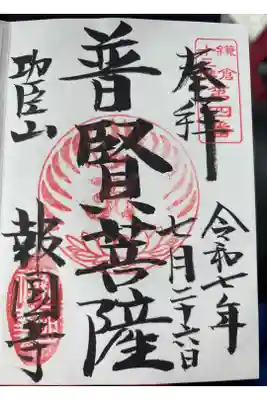 鎌倉
奉拝
令和七年
七月二十六日
普賢菩薩
功臣山
報国寺